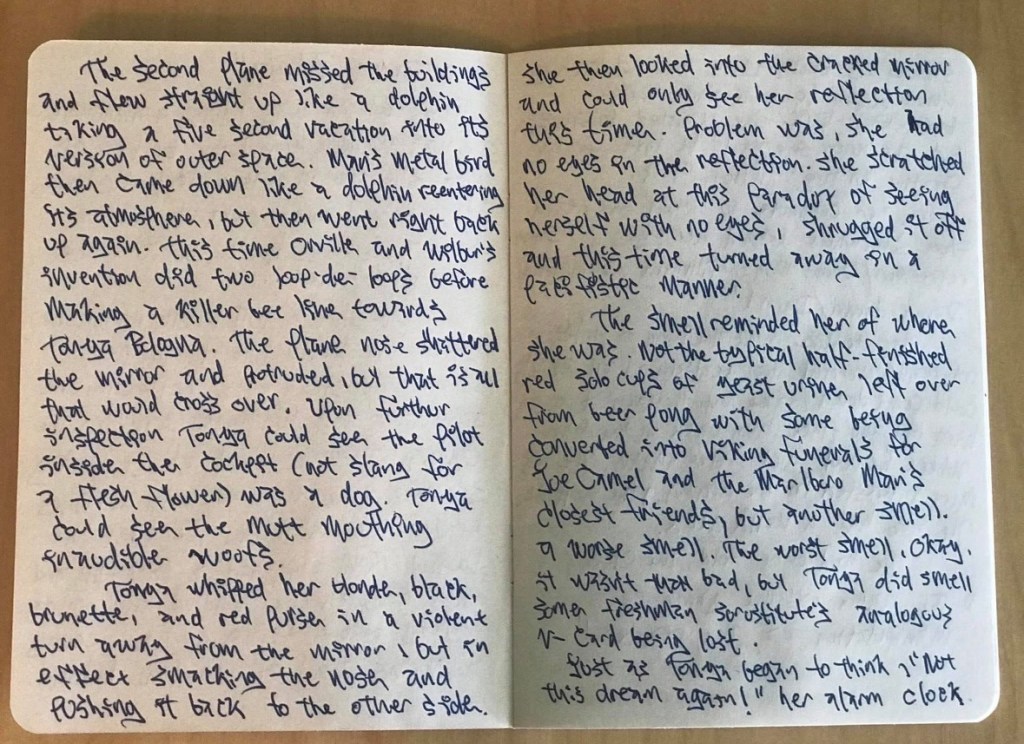 The second plane missed the buildings
and flew straight up like a dolphin
taking a five second vacation into its
version of outer space. Man's metal bird
then came down like a dolphin reentering
its atmosphere, but then went right back
up again. This time Orville and Wilbur's
invention did two loop-de-loops before
making a killer bee line towards
Tonya Bologna. The plane nose shattered
the mirror and protruded, but that is all
that would cross over. Upon furthur
inspection Tonya could see the pilot
inside the cockpit (not slang for
a flesh flower) was a dog. Tonya
could see the mutt mouthing
inaudible woofs.
Tonya whipped her blonde, black,
brunette, and red purse in a violent
turn away from the mirror, but in
effect smacking the nose and
pushing it back to the other side.
She then looked into the cracked mirror
and could only see her reflection
this time. Problem was, she had
no eyes in the reflection. She scratched
her head at this paradox of seeing
herself with no eyes, shrugged it off
and this time turned away in a
manner.
The smell reminded her of where
she was. Not the typical half-finished
red solo cups of yeast urine left over
from beer pong with some being
converted into Viking funerals for
Joe Camel and the Marlboro Man's
closest friends, but another smell.
a worse smell. The worst smell. Okay,
it wasn't that bad, but Tonya did smell
some freshman sorostitute's analogous
V-card being lost.
Just as Tonya began to think, "Not
this dream again!" her alarm clock